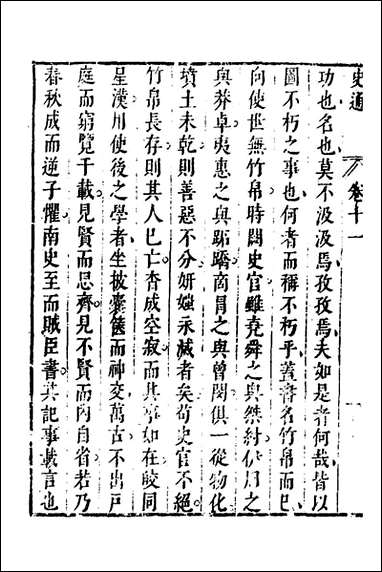 史通 卷十一
功也名也莫不汲汲焉孜孜焉夫如是者何哉皆以
圖不朽之事也何者而稱不朽乎蓋書名竹帛而已
向使世無竹帛時闕史官雖堯舜之與桀紂伊周之
與莽卓夷惠之與跖蹻商冒之與曾閔俱一從物化
墳土未乾則善惡不分妍媸永滅者矣苟史官不絕
竹帛長存則其人已亡杳成空寂而其事如在皎同
星漢用使後之學者坐披囊篋而神交萬古不出戶
庭而窮覽千載見賢而思齊見不賢而內自省若乃
春秋成而逆子懼南史至而賊臣書其記事載言也